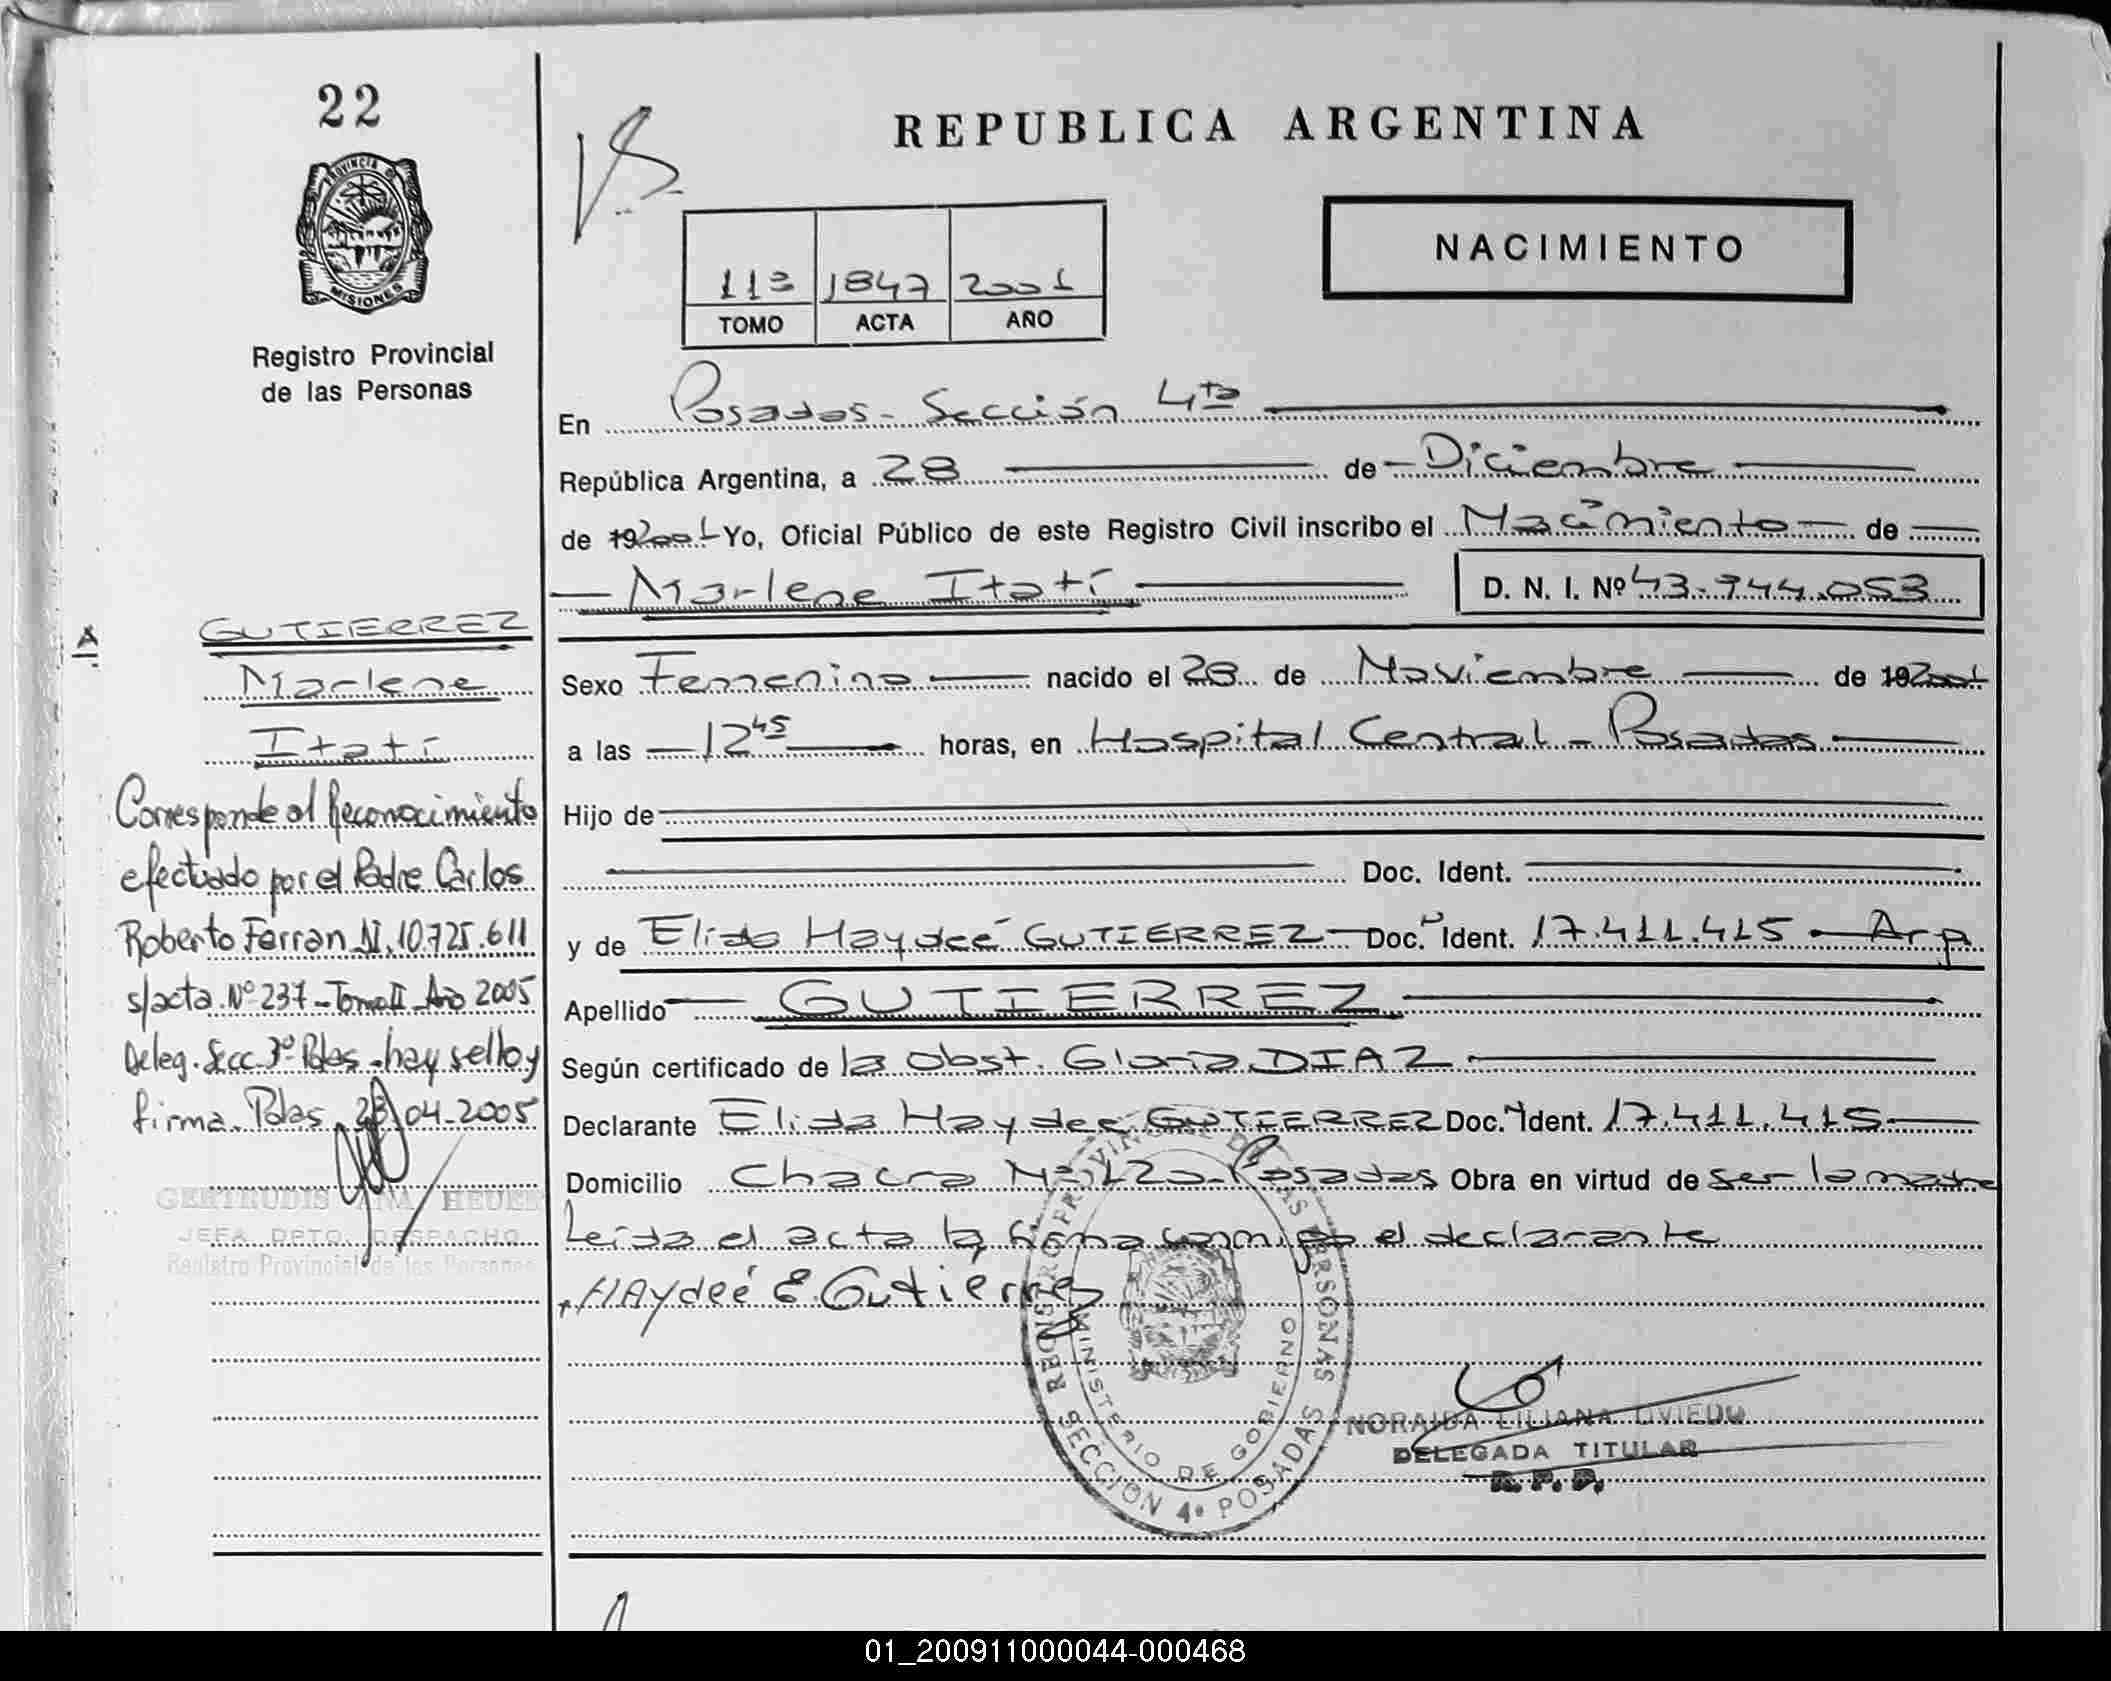 22
PROVINCIA DE
MISIONES
Registro Provincial
de las Personas
REPUBLICA ARGENTINA
NACIMIENTO
113 1847 2001
TOMO ACTA AÑO
En Posadas - Sección 4ta
República Argentina, a 28 de Diciembre
de 192001 Yo, Oficial Público de este Registro Civil inscribo el Nacimiento de
Marlene Itatí D. N. I. Nº 43.744.053
Sexo Femenino nacido el 28 de Noviembre de 192001
a las 12 45 horas, en Hospital Central - Posadas
Hijo de
Doc. Ident.
y de Elida Haydeé GUTIERREZ Doc. Ident. 17.411.415 - Arg
Apellido GUTIERREZ
Según certificado de la Obst. Gloria DIAZ
Declarante Elida Haydeé GUTIERREZ Doc. Ident. 17.411.415
Domicilio Chacra Nº 120 - Posadas Obra en virtud de ser la madre
Leída el acta la firma conmigo el declarante
HAydeé E. Gutierrez
REGISTRO PROVINCIAL DE LAS PERSONAS
MINISTERIO DE GOBIERNO
SECCIÓN 4º POSADAS
NORAIDA LILIANA OVIEDO
DELEGADA TITULAR
R. P. P.
A
GUTIERREZ
Marlene
Itatí
Corresponde al Reconocimiento
efectuado por el Padre Carlos
Roberto Ferran DI. 10.725.611
s/acta Nº 237 - Tomo II Año 2005
Deleg. Secc. 3º Pdas - hay sello y
firma. Pdas, 28-04-2005
GERTRUDIS ANA HEUER
JEFA DPTO. DESPACHO
Registro Provincial de las Personas
01_200911000044-000468